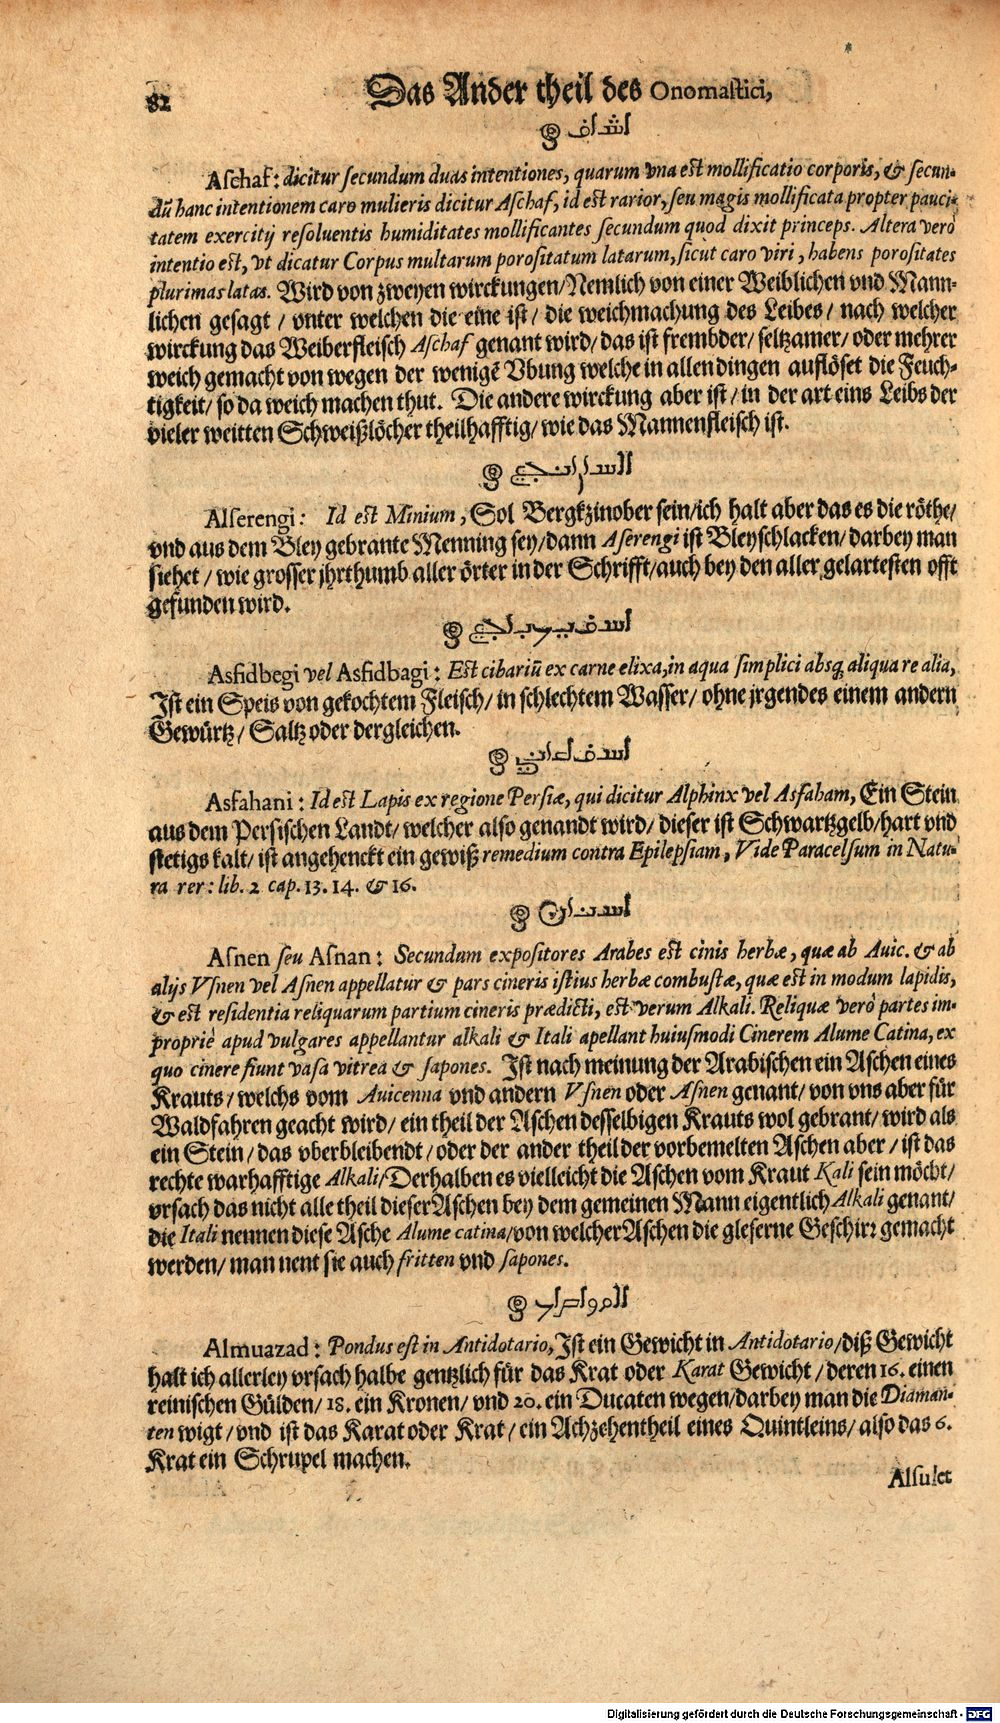 82
Das Ander theil des Onomastici,
Aschaf: dicitur secundum duas intentiones, quarum vna est mollificatio corporis, & secun-
dū hanc intentionem caro mulieris dicitur Aschaf, id est rarior, seu magis mollificata propter pauci-
tatem exercitij resoluentis humiditates mollificantes secundum quod dixit princeps. Altera verò
intentio est, vt dicatur Corpus multarum porositatum latarum, sicut caro viri, habens porositates
plurimas latas. Wird von zweyen wirckungen/ Nemlich von einer Weiblichen vnd Mann-
lichen gesagt / vnter welchen die eine ist / die weichmachung des Leibes / nach welcher
wirckung das Weiberfleisch Aschaf genant wird / das ist frembder / seltzamer / oder mehrer
weich gemacht von wegen der wenigē Vbung welche in allen dingen auflöset die Feuch-
tigkeit / so da weich machen thut. Die andere wirckung aber ist / in der art eins Leibs der
vieler weitten Schweißlöcher theilhafftig / wie das Mannenfleisch ist.
Alserengi: Id est Minium, Sol Bergkzinober sein / ich halt aber das es die röthe /
vnd aus dem Bley gebrante Menning sey / dann Aserengi ist Bleyschlacken / darbey man
siehet / wie grosser jhrthumb aller örter in der Schrifft / auch bey den aller gelartesten offt
gefunden wird.
Asfidbegi vel Asfidbagi: Est cibariū ex carne elixa, in aqua simplici absq; aliqua re alia,
Ist ein Speis von gekochtem Fleisch / in schlechtem Wasser / ohne jrgendes einem andern
Gewürtz / Saltz oder dergleichen.
Asfahani: Id est Lapis ex regione Persiæ, qui dicitur Alphinx vel Asfaham, Ein Stein
aus dem Persischen Landt / welcher also genandt wird / dieser ist Schwartzgelb / hart vnd
stetigs kalt / ist angehenckt ein gewiß remedium contra Epilepsiam, Vide Paracelsum in Natu-
ra rer: lib. 2 cap. 13. 14. & 16.
Asnen seu Asnan: Secundum expositores Arabes est cinis herbæ, quæ ab Auic. & ab
alijs Vsnen vel Asnen appellatur & pars cineris istius herbæ combustæ, quæ est in modum lapidis,
& est residentia reliquarum partium cineris prædicti, est verum Alkali. Reliquæ verò partes im-
propriè apud vulgares appellantur alkali & Itali apellant huiusmodi Cinerem Alume Catina, ex
quo cinere fiunt vasa vitrea & sapones. Ist nach meinung der Arabischen ein Aschen eines
Krauts / welchs vom Auicenna vnd andern Vsnen oder Asnen genant / von vns aber für
Waldfahren geacht wird / ein theil der Aschen desselbigen Krauts wol gebrant / wird als
ein Stein / das vberbleibendt / oder der ander theil der vorbemelten Aschen aber / ist das
rechte warhafftige Alkali / Derhalben es vielleicht die Aschen vom Kraut Kali sein möcht /
vrsach das nicht alle theil dieser Aschen bey dem gemeinen Mann eigentlich Alkali genant /
die Itali nennen diese Asche Alume catina / von welcher Aschen die gleserne Geschirr gemacht
werden / man nent sie auch fritten vnd sapones.
Almuazad: Pondus est in Antidotario, Ist ein Gewicht in Antidotario / diß Gewicht
halt ich allerley vrsach halbe gentzlich für das Krat oder Karat Gewicht / deren 16. einen
reinischen Gülden / 18. ein Kronen / vnd 20. ein Ducaten wegen / darbey man die Diaman-
ten wigt / vnd ist das Karat oder Krat / ein Achzehentheil eines Quintleins / also das 6.
Krat ein Schrupel machen.
Alsulet
Digitalisierung gefördert durch die Deutsche Forschungsgemeinschaft - DFG